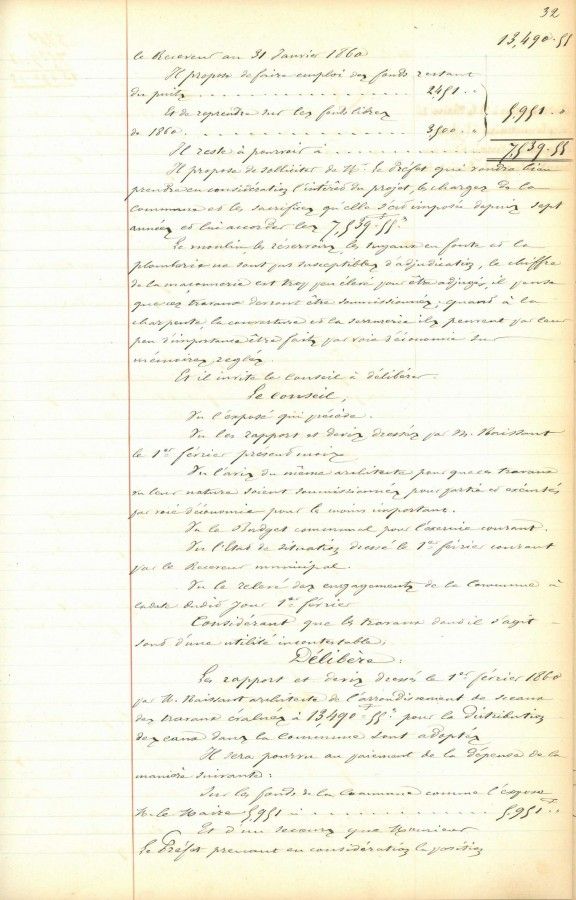 32
13,490.55
le Receveur au 31 Janvier 1860
Il propose de faire emploi des fonds restant
du puits . . . . . . . . . . 2451 ..
Et de reprendre sur les fonds libres 5,951 ..
de 1860 . . . . . . . . . . 3500 ..
Il reste à pourvoir à . . . . . . . . 7,539.55
Il propose de solliciter de Mr. le Préfet qui voudra bien
prendre en considération l'intérêt du projet, les charges de la
Commune et les sacrifices qu'elle s'est imposée depuis sept
années et lui accorder les 7,539 f. 55 c.
Le moulin, les réservoirs, les tuyaux en fonte et la
plomberie ne sont pas susceptibles d'adjudication, le chiffre
de la maçonnerie est trop peu élevé pour être adjugé, il pense
que ces travaux devront être soumissionnés; quand à la
charpente, la couverture et la serrurerie ils peuvent par leur
peu d'importance être faits par voie d'économie sur
mémoires réglés.
Et il invite le Conseil à délibérer.
Le Conseil,
Vu l'exposé qui précède.
Vu les rapport et devis dressés par M. Naissant
le 1er février présent mois
Vu l'avis du même architecte pour que ces travaux
vu leur nature soient soumissionnés pour partie et exécutés
par voie d'économie pour le moins important.
Vu le Budget communal pour l'exercice courant.
Vu l'Etat de situation dressé le 1er février courant
par le Receveur municipal.
Vu le relevé des engagements de la Commune à
la date dudit jour 1er février
Considérant que les travaux dont il s'agit
sont d'une utilité incontestable,
Délibère:
Les rapport et devis dressés le 1er février 1860
par M. Naissant architecte de l'arrondissement de Sceaux
des travaux évalués à 13,490 f. 55 c. pour la distribution
des eaux dans la Commune sont adoptés
Il sera pourvu au paiement de la dépense de la
manière suivante:
Sur les fonds de la Commune comme l'expose
M. le Maire 5,951 à . . . . . . . . 5,951 f ..
Et d'un secours que Monsieur
le Préfet prenant en considération la position